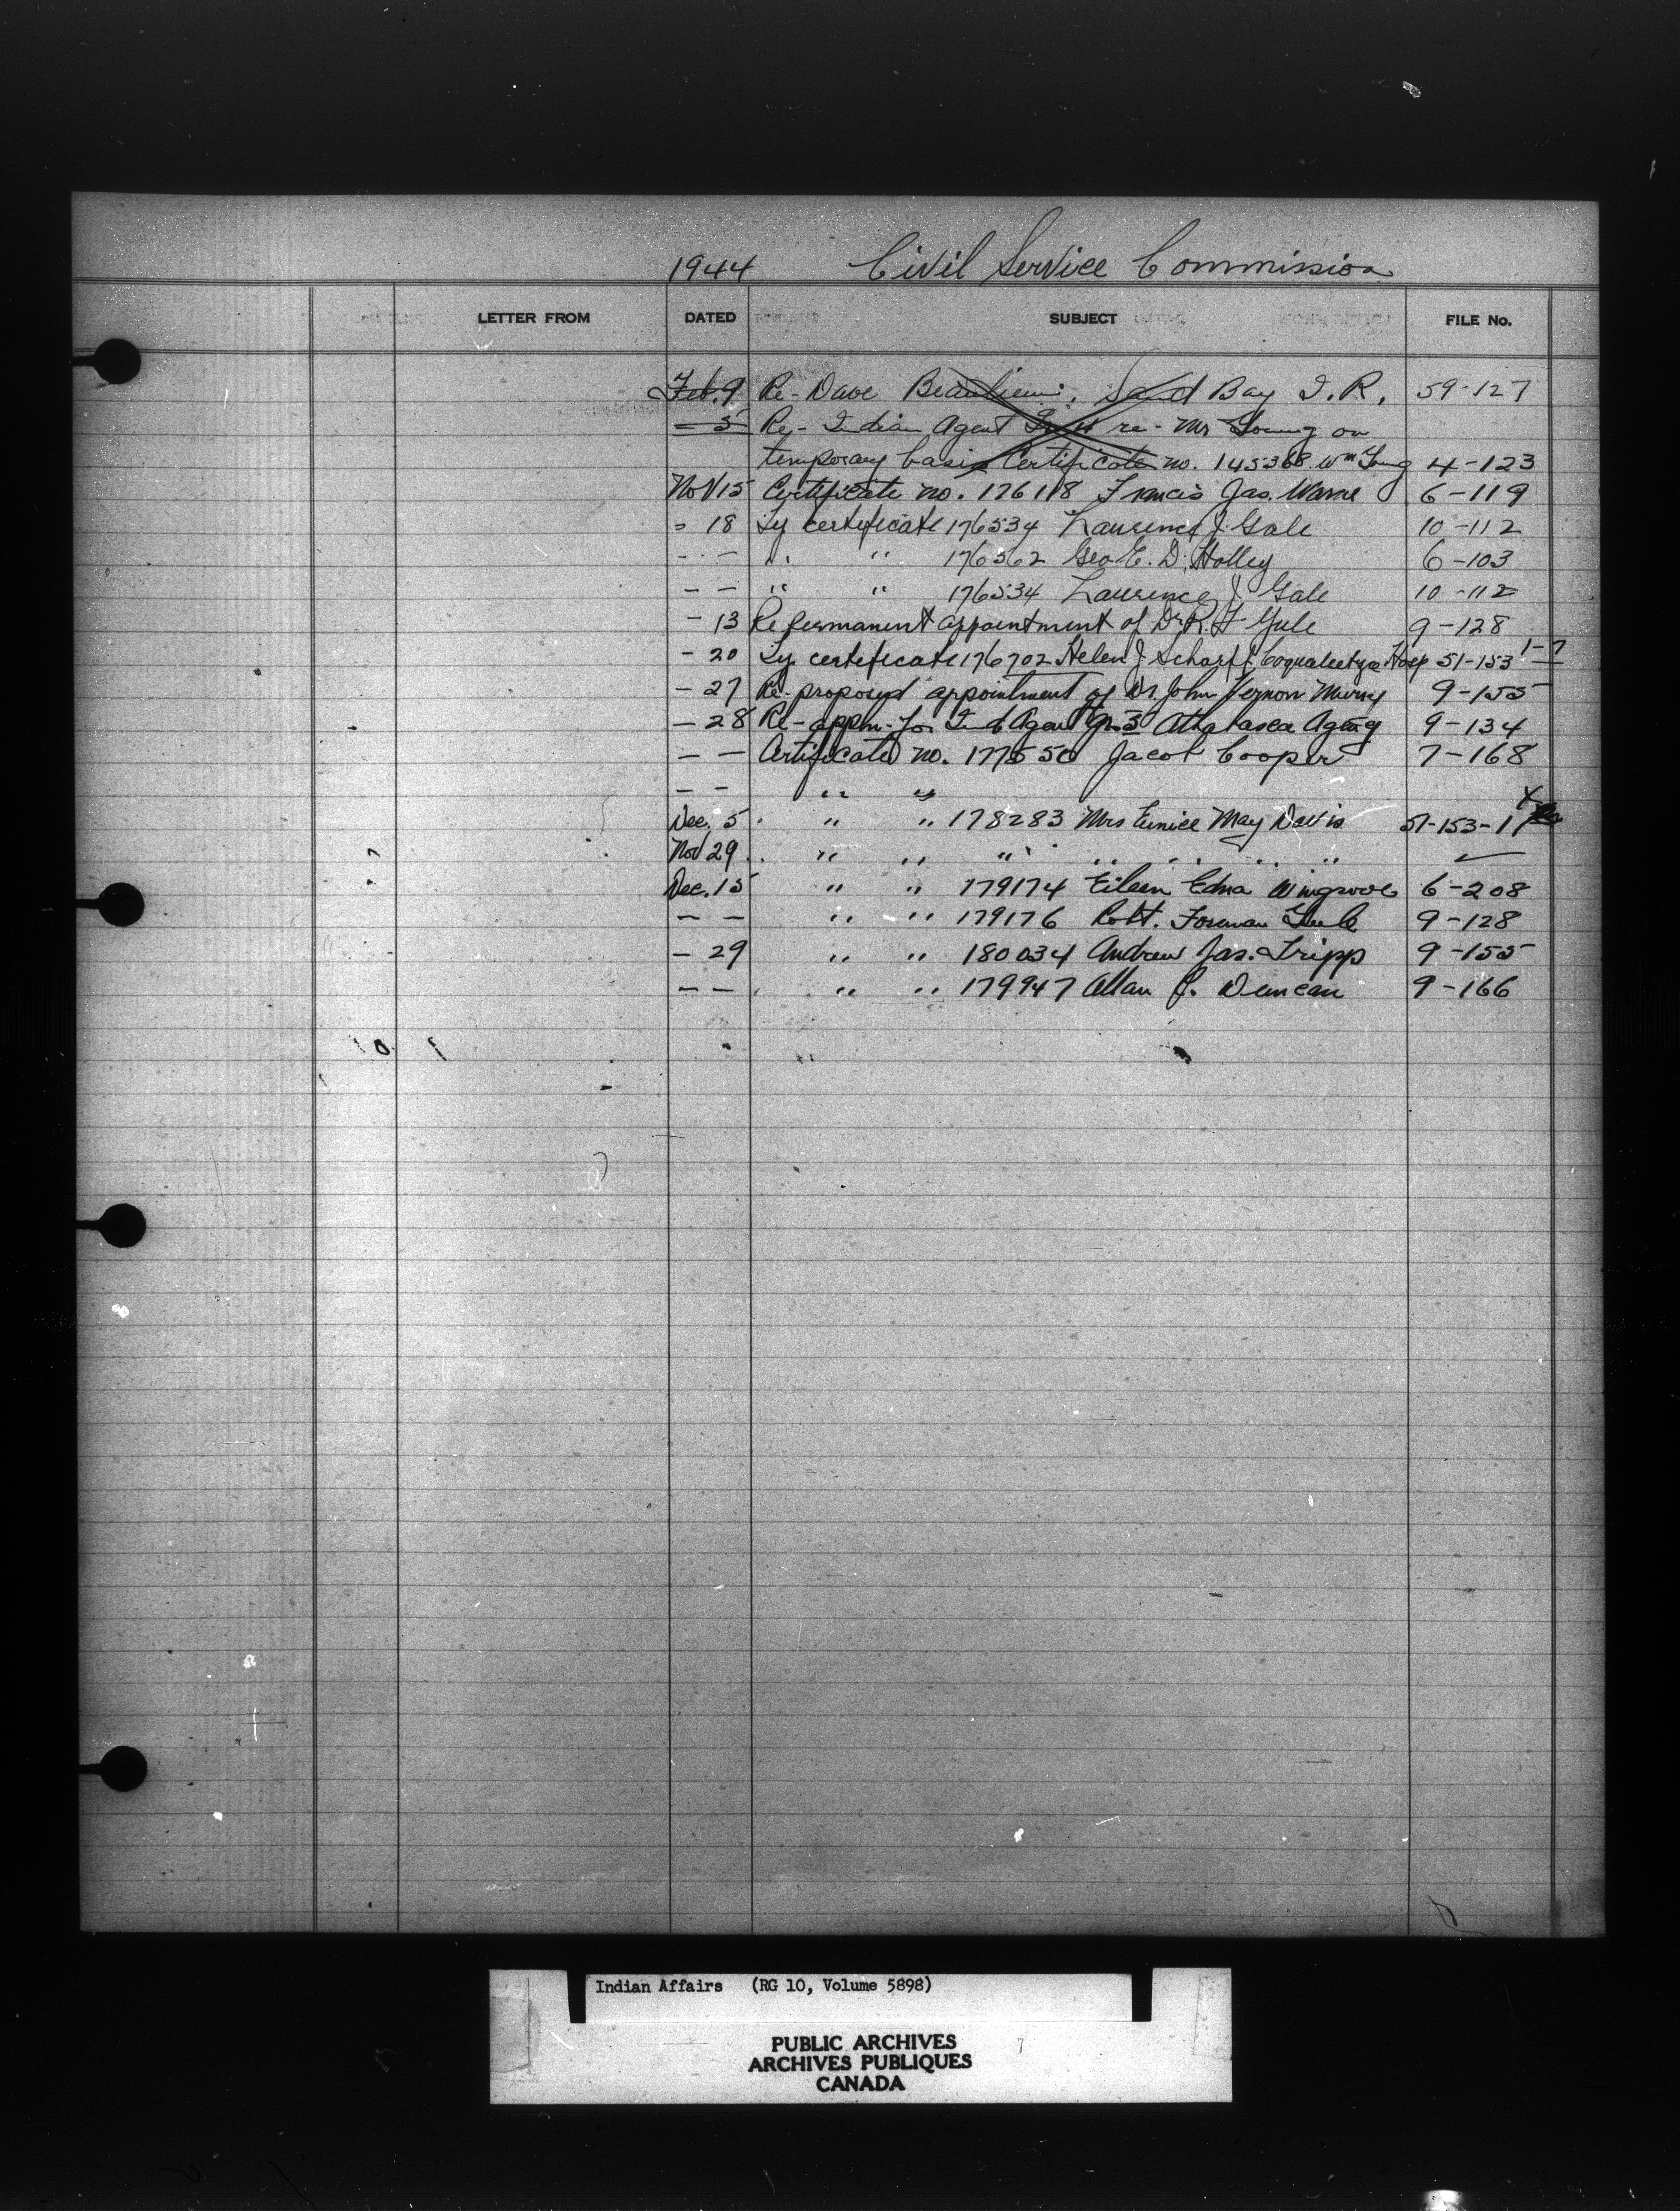 1944 Civil Service Commission
LETTER FROM DATED SUBJECT FILE No.
Feb. 9 Re- Dave Beaulieu, Sand Bay I.R. 59-127
- 5 Re- Indian Agent re- Mr Young on
temporary basis Certificate no. 145368 Wm Young 4-123
Nov 15 Certificate no. 176118 Francis Jas. Warne 6-119
" 18 Ty certificate 176534 Laurence J. Gale 10-112
- - " " 176362 Geo E. D. Holley 6-103
- - " " 176534 Laurence J. Gale 10-112
- 13 Re permanent appointment of Dr R. F. Yule 9-128
- 20 Ty certificate 176702 Helen J Scharff Coqualeetza Hosp 51-153 1-7
- 27 Re- proposed appointment of Dr. John Vernon Murray 9-155
- 28 Re- appm. for Ind Agent Gr. 3 Athabasca Agency 9-134
- - Certificate no. 177550 Jacob Cooper 7-168
- - " "
Dec. 5 " " 178283 Mrs Eunice May Davis 51-153-1
Nov 29 " " " " " " "
Dec. 15 " " 179174 Eileen Edna Wingrove 6-208
- - " " 179176 Robt. Foreman Yule 9-128
- 29 " " 180034 Andrew Jas. Tripp 9-155
- - " " 179947 Allan J. Duncan 9-166
Indian Affairs (RG 10, Volume 5898)
PUBLIC ARCHIVES
ARCHIVES PUBLIQUES
CANADA